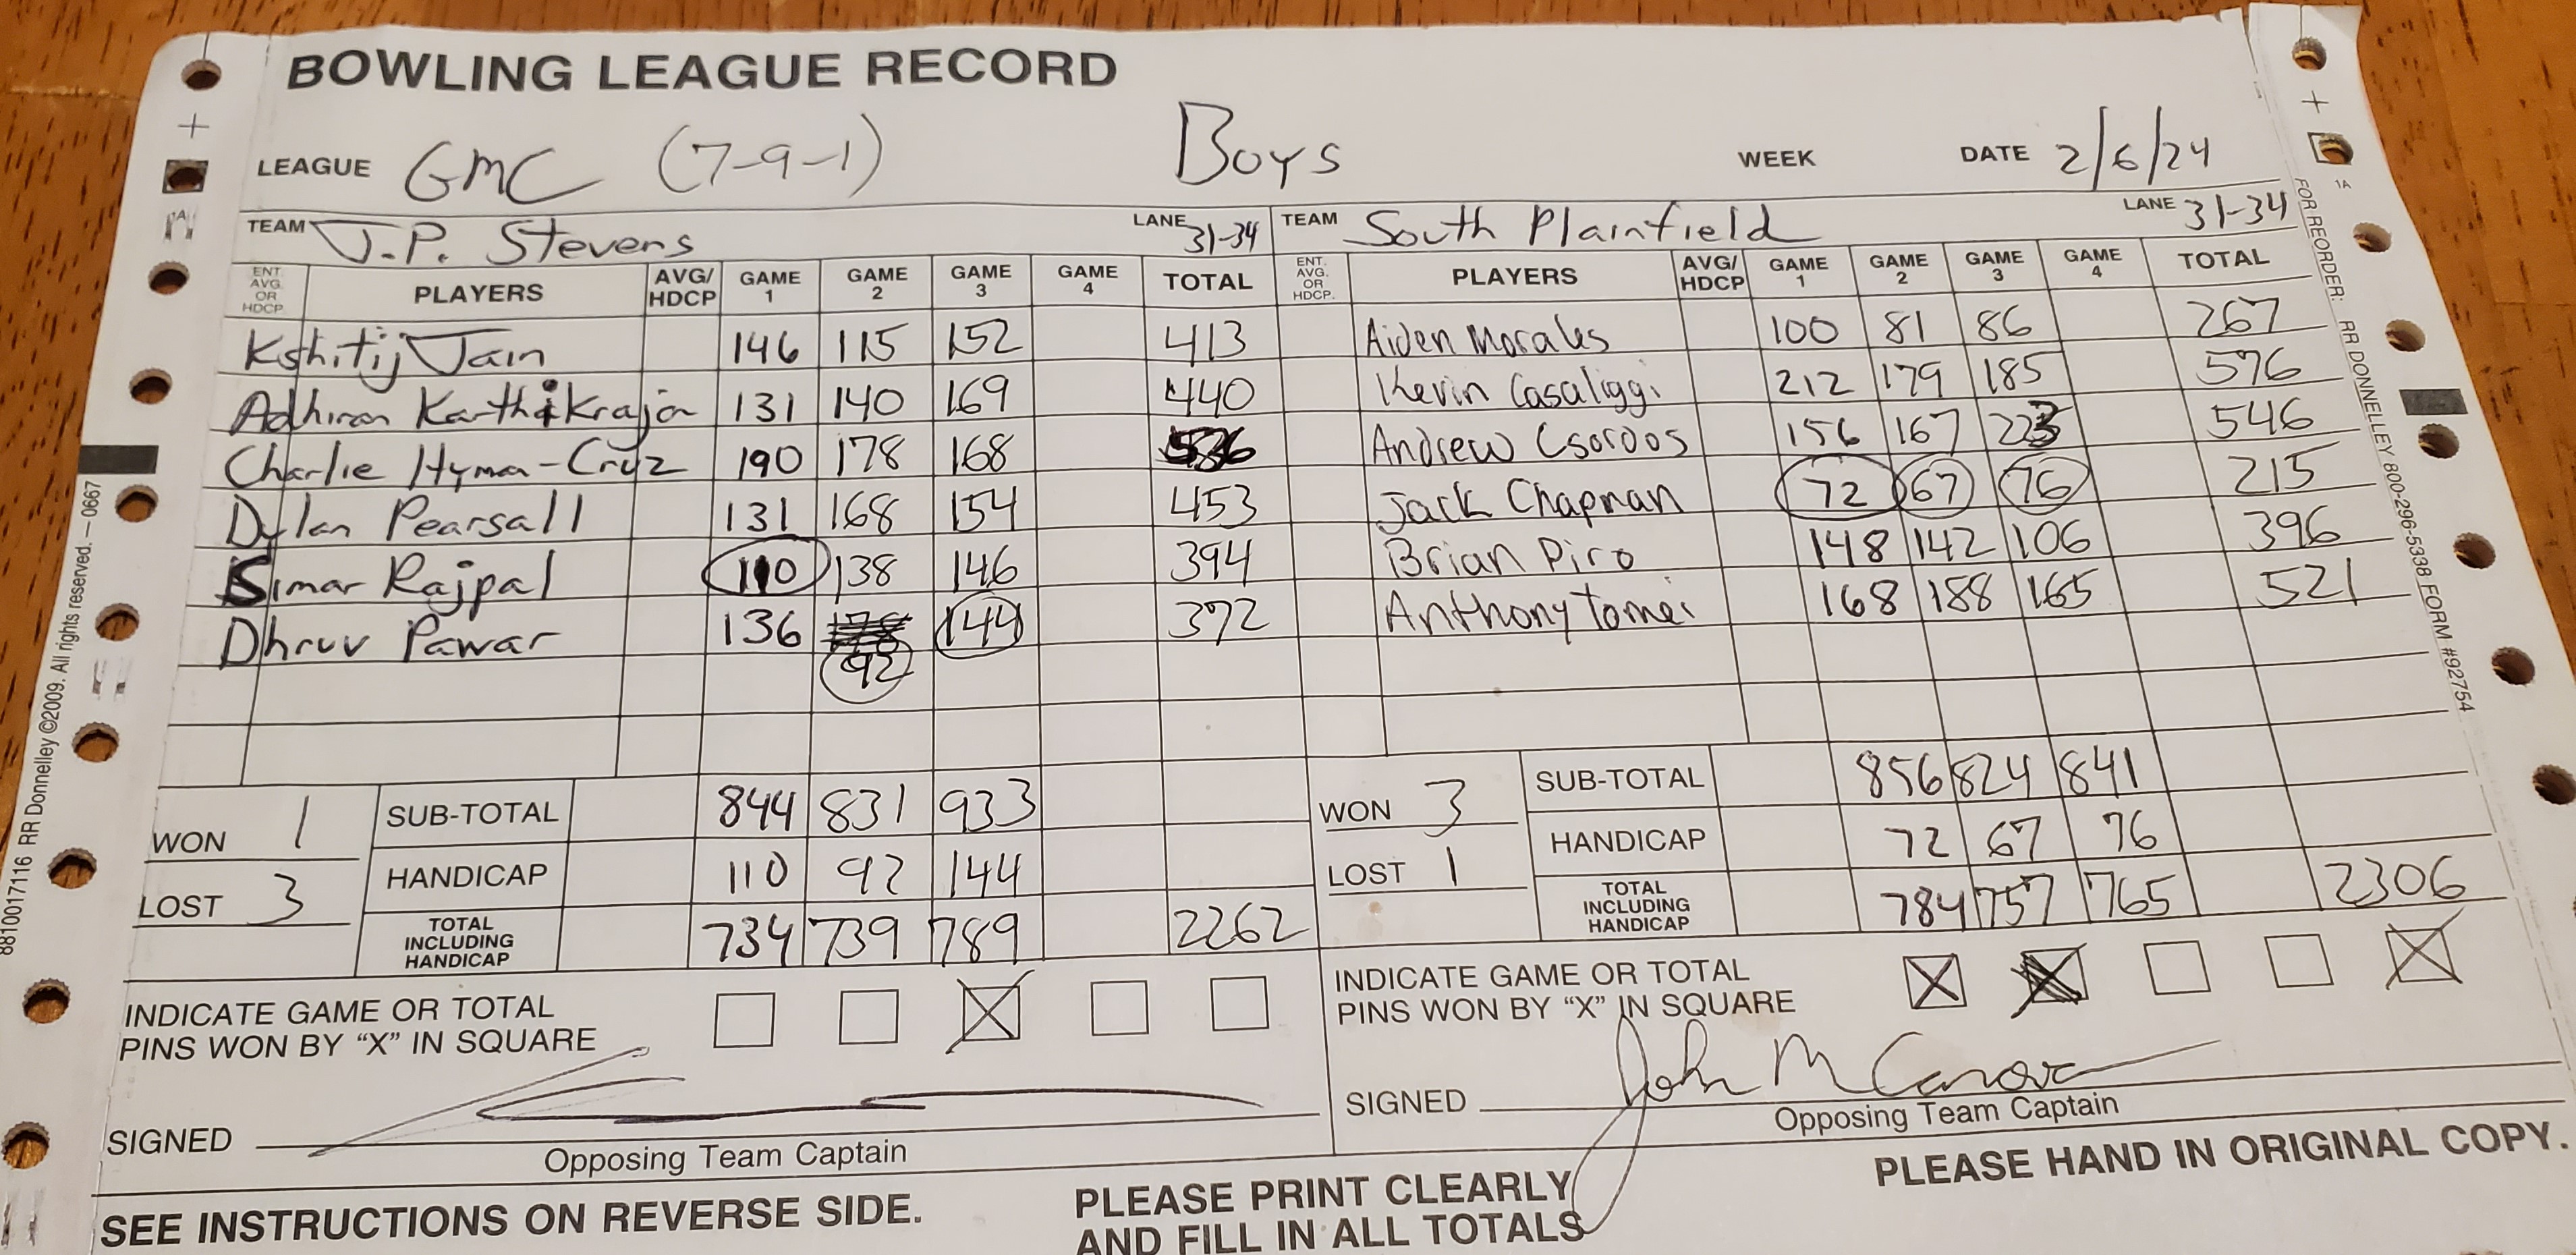 BOWLING LEAGUE RECORD
LEAGUE GMC (7-9-1) Boys WEEK DATE 2/6/24
TEAM J.P. Stevens LANE 31-34 TEAM South Plainfield LANE 31-34
ENT. AVG. OR HDCP. PLAYERS AVG/HDCP GAME 1 GAME 2 GAME 3 GAME 4 TOTAL ENT. AVG. OR HDCP. PLAYERS AVG/HDCP GAME 1 GAME 2 GAME 3 GAME 4 TOTAL
Kshitij Jain 146 115 152 413 Aiden Morales 100 81 86 267
Adhiran Karthikrajan 131 140 169 440 Kevin Casaliggi 212 179 185 576
Charlie Hyman-Cruz 190 178 168 536 Andrew Csordos 156 167 223 546
Dylan Pearsall 131 168 154 453 Jack Chapman 72 67 76 215
Simar Rajpal 110 138 146 394 Brian Piro 148 142 106 396
Dhruv Pawar 136 144 372 Anthony Tomei 168 188 165 521
92
WON 1 SUB-TOTAL 844 831 933 WON 3 SUB-TOTAL 856 824 841
LOST 3 HANDICAP 110 92 144 LOST 1 HANDICAP 72 67 76
TOTAL INCLUDING HANDICAP 734 739 789 2262 TOTAL INCLUDING HANDICAP 784 757 765 2306
INDICATE GAME OR TOTAL X INDICATE GAME OR TOTAL X X X
PINS WON BY “X” IN SQUARE PINS WON BY “X” IN SQUARE
SIGNED SIGNED John M
Opposing Team Captain Opposing Team Captain
SEE INSTRUCTIONS ON REVERSE SIDE. PLEASE PRINT CLEARLY PLEASE HAND IN ORIGINAL COPY.
AND FILL IN ALL TOTALS
8810017116 RR Donnelley ©2009. All rights reserved. — 0667
1A
1A
FOR REORDER: RR DONNELLEY 800-296-5338 FORM #92754